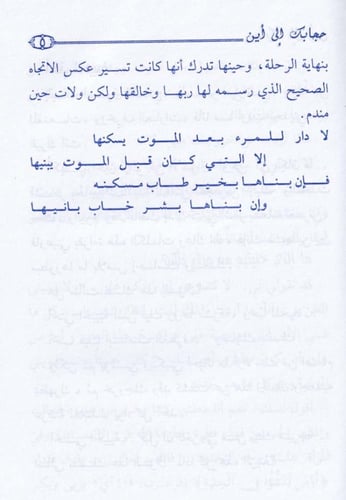 حجابك إلى أين
٥
بنهاية الرحلة، وحينها تدرك أنها كانت تسير عكس الاتجاه
الصحيح الذي رسمه لها ربها وخالقها ولكن ولات حين
مندم.
لا دار للمرء بعد الموت يسكنها
إلا التي كان قبل الموت يبنيها
فإن بناها بخير طاب مسكنه
وإن بناها بشر خاب بانيها